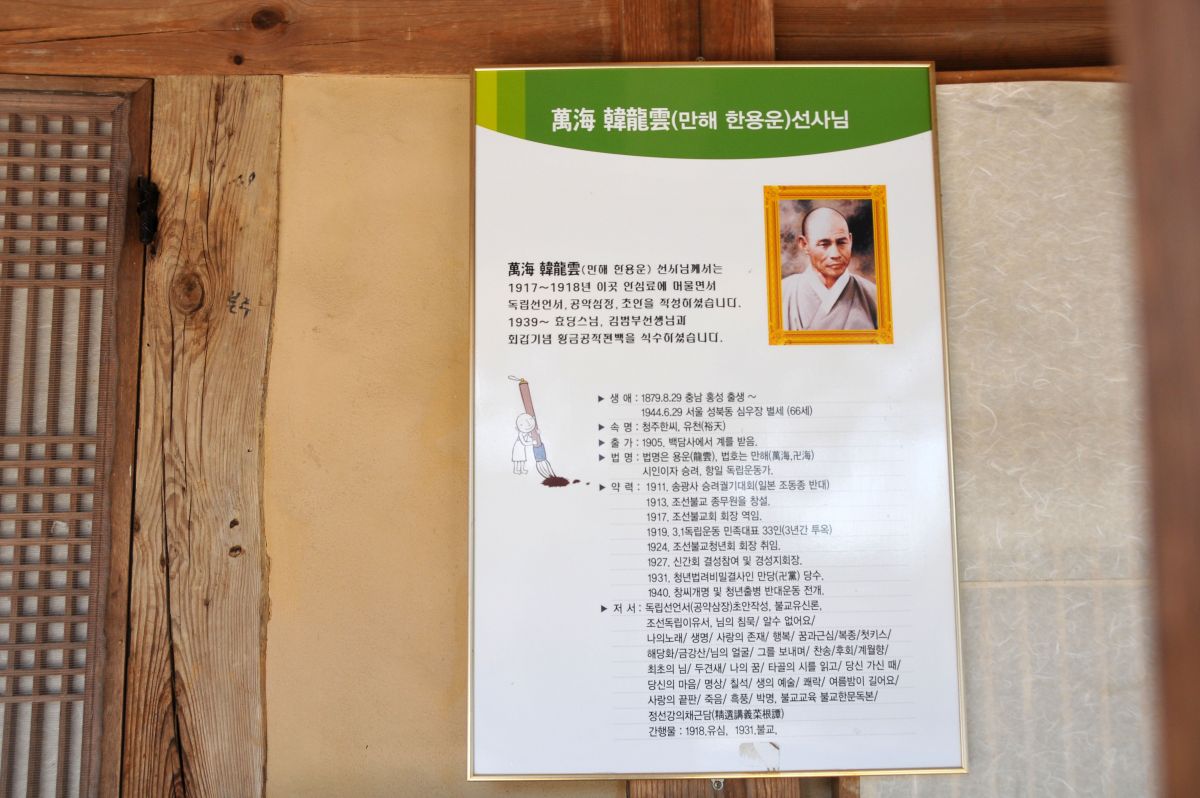 萬海 韓龍雲(만해 한용운)선사님
萬海 韓龍雲(만해 한용운) 선사님께서는
1917~1918년 이곳 안심료에 머물면서
독립선언서, 공약삼장, 초안을 작성하셨습니다.
1939~ 효당스님, 김범부선생님과
회갑기념 황금공작편백을 식수하셨습니다.
▶ 생 애 : 1879.8.29 충남 홍성 출생 ~
1944.6.29 서울 성북동 심우장 별세 (66세)
▶ 속 명 : 청주한씨, 유천(裕天)
▶ 출 가 : 1905. 백담사에서 계를 받음.
▶ 법 명 : 법명은 용운(龍雲), 법호는 만해(萬海,卍海)
시인이자 승려, 항일 독립운동가.
▶ 약 력 : 1911. 송광사 승려궐기대회(일본 조동종 반대)
1913. 조선불교 종무원을 창설.
1917. 조선불교회 회장 역임.
1919. 3.1독립운동 민족대표 33인(3년간 투옥)
1924. 조선불교청년회 회장 취임.
1927. 신간회 결성참여 및 경성지회장.
1931. 청년법려비밀결사인 만당(卍黨) 당수.
1940. 창씨개명 및 청년출병 반대운동 전개.
▶ 저 서 : 독립선언서(공약삼장)초안작성, 불교유신론,
조선독립이유서, 님의 침묵/ 알수 없어요/
나의노래/ 생명/ 사랑의 존재/ 행복/ 꿈과근심/복종/첫키스/
해당화/금강산/님의 얼굴/ 그를 보내며/ 찬송/후회/계월향/
최초의 님/ 두견새/ 나의 꿈/ 타골의 시를 읽고/ 당신 가신 때/
당신의 마음/ 명상/ 칠석/ 생의 예술/ 쾌락/ 여름밤이 길어요/
사랑의 끝판/ 죽음/ 흑풍/ 박명, 불교교육 불교한문독본/
정선강의채근담(精選講義菜根譚)
간행물 : 1918.유심, 1931.불교.